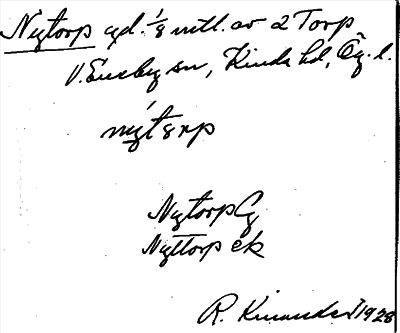 Nytorp gd. 1/8 mtl. av 2 Torp
V. Eneby sn, Kinda hd, Ög. l.
nýtørp
Nytorp Cg
Nyttorp ek
R. Kinander 1928